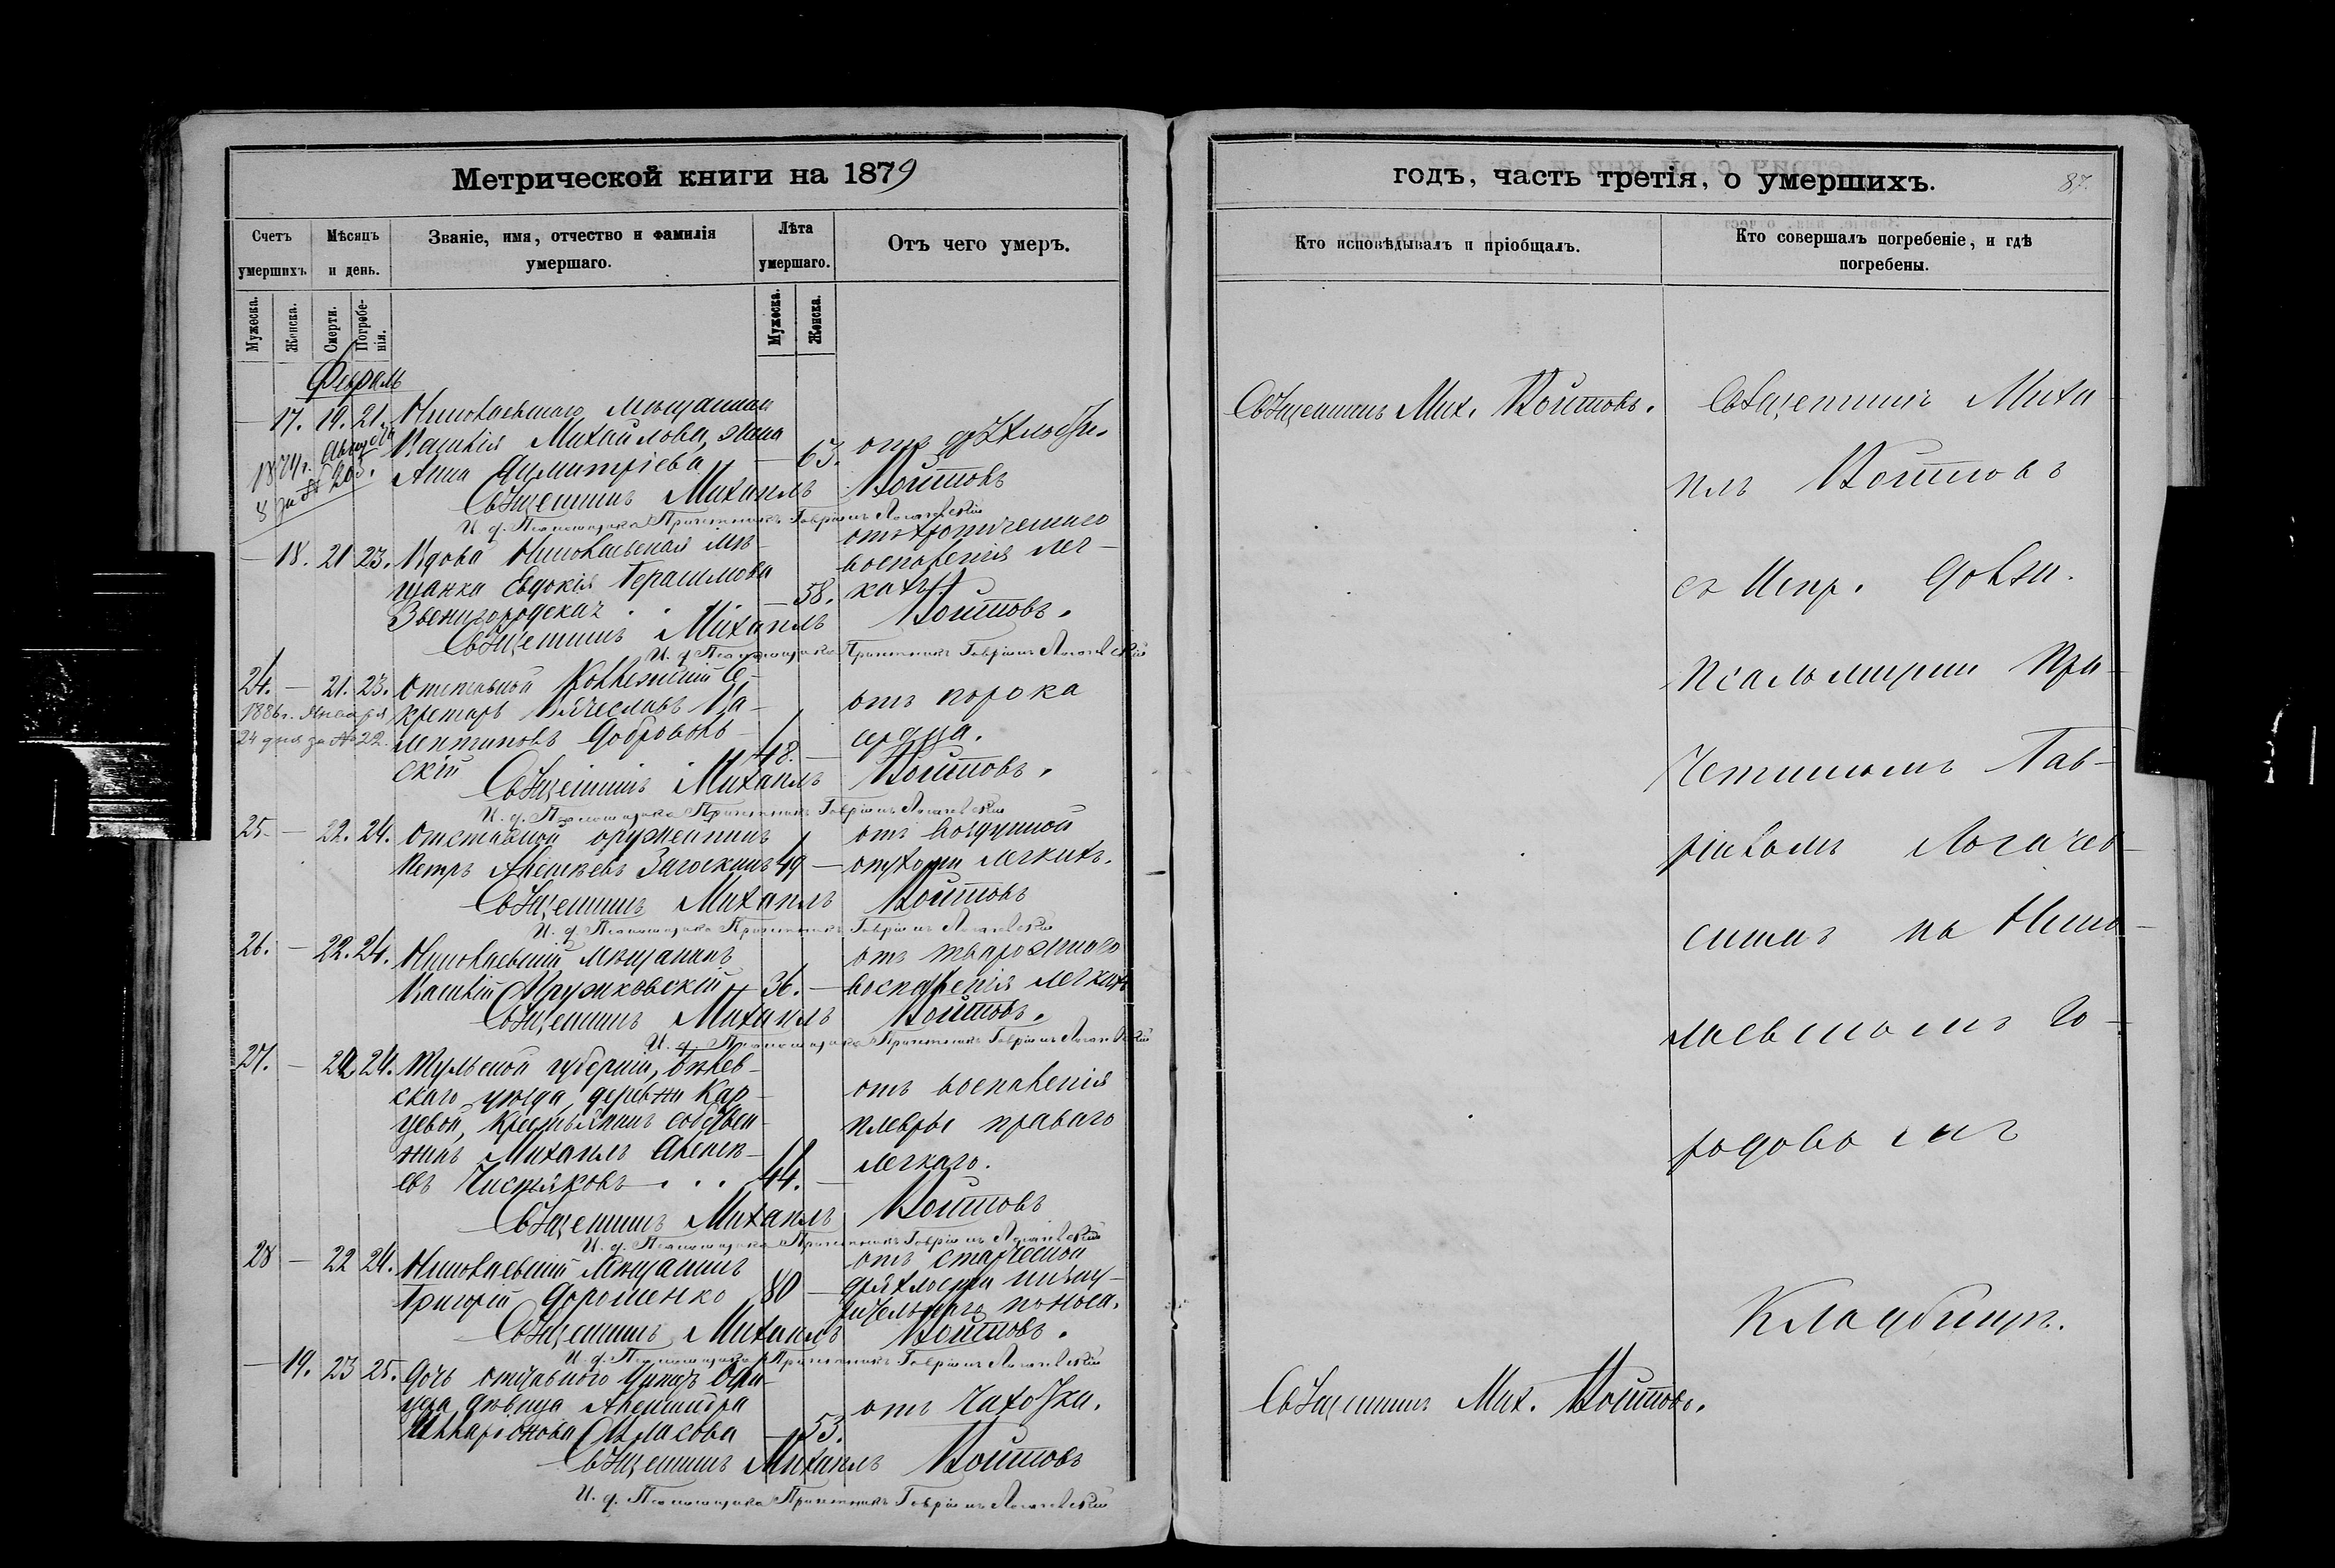 Метрической книги на 1879
Счетъ умершихъ
Мѣсяцъ и день.
Званіе, имя, отчество и фамилія умершаго.
Лѣта умершаго.
Отъ чего умеръ.
Мужеска.
Женска.
Смерти.
Погребенія.
Мужеска.
Женска.
Февраль
— 17. 19. 21. Николаевскаго мѣщанина
Василія Михайлова, жена
Анна Димитріева — 63. отъ дряхлости.
1879г. Августа
8 за № 203.
Священникъ Михаилъ Войтовъ
И. д. Псаломщика Причетникъ Гавріилъ Логачевскій
— 18. 21 23. Вдова Николаевская мѣ-
щанка Евдокія Герасимова
Звенигородская . . — 58.
отъ хроническаго
воспаленія лег-
кихъ.
Священникъ Михаилъ Войтовъ.
И. д. Псаломщика Причетникъ Гавріилъ Логачевскій
24. — 21. 23. Отставной Коллежскій Се-
кретарь Вячеславъ Ва-
лентиновъ Добровол-
скій 48. —
отъ порока
сердца.
1886г. Января
24 дня за № 22.
Священникъ Михаилъ Войтовъ.
И. д. Псаломщика Причетникъ Гавріилъ Логачевскій
25 — 22. 24. Отставной оружейникъ
Петръ Алексѣевъ Загоскинъ 49 —
отъ воздушной
опухоли легкихъ.
Священникъ Михаилъ Войтовъ
И. д. Псаломщика Причетникъ Гавріилъ Логачевскій
26. — 22. 24. Николаевскій мѣщанинъ
Василій Мружковскій 36. —
отъ творожнаго
воспаленія легкихъ
Священникъ Михаилъ Войтовъ.
И. д. Псаломщика Причетникъ Гавріилъ Логачевскій
27. — 22 24. Тульской губерніи, Бѣлев-
скаго уѣзда, деревни Кар-
цевой, крестьянинъ собствен-
никъ Михаилъ Алексѣ-
евъ Чистяковъ . . . 44. —
отъ воспаленія
плевры праваго
легкаго.
Священникъ Михаилъ Войтовъ
И. д. Псаломщика Причетникъ Гавріилъ Логачевскій
28 — 22 24. Николаевскій мѣщанинъ
Григорій Дорошенко 80 —
отъ старческой
дряхлости
поноса.
Священникъ Михаилъ Войтовъ.
И. д. Псаломщика Причетникъ Гавріилъ Логачевскій
— 19. 23 25. Дочь отставного Унтеръ Офи-
цера дѣвица Александра
Илларіонова Власова — 53.
отъ чахотки.
Священникъ Михаилъ Войтовъ
И. д. Псаломщика Причетникъ Гавріилъ Логачевскій
годъ, часть третія, о умершихъ.
87.
Кто исповѣдывалъ и пріобщалъ.
Кто совершалъ погребеніе, и гдѣ погребены.
Священникъ Мих. Войтовъ.
Священникъ Миха-
илъ Войтовъ
съ Испр. долж.
псаломщик При-
четникомъ Гав-
ріиломъ Логачев-
скимъ на Нико-
лаевскомъ Го-
родовомъ
Кладбищѣ.
Священникъ Мих. Войтовъ.